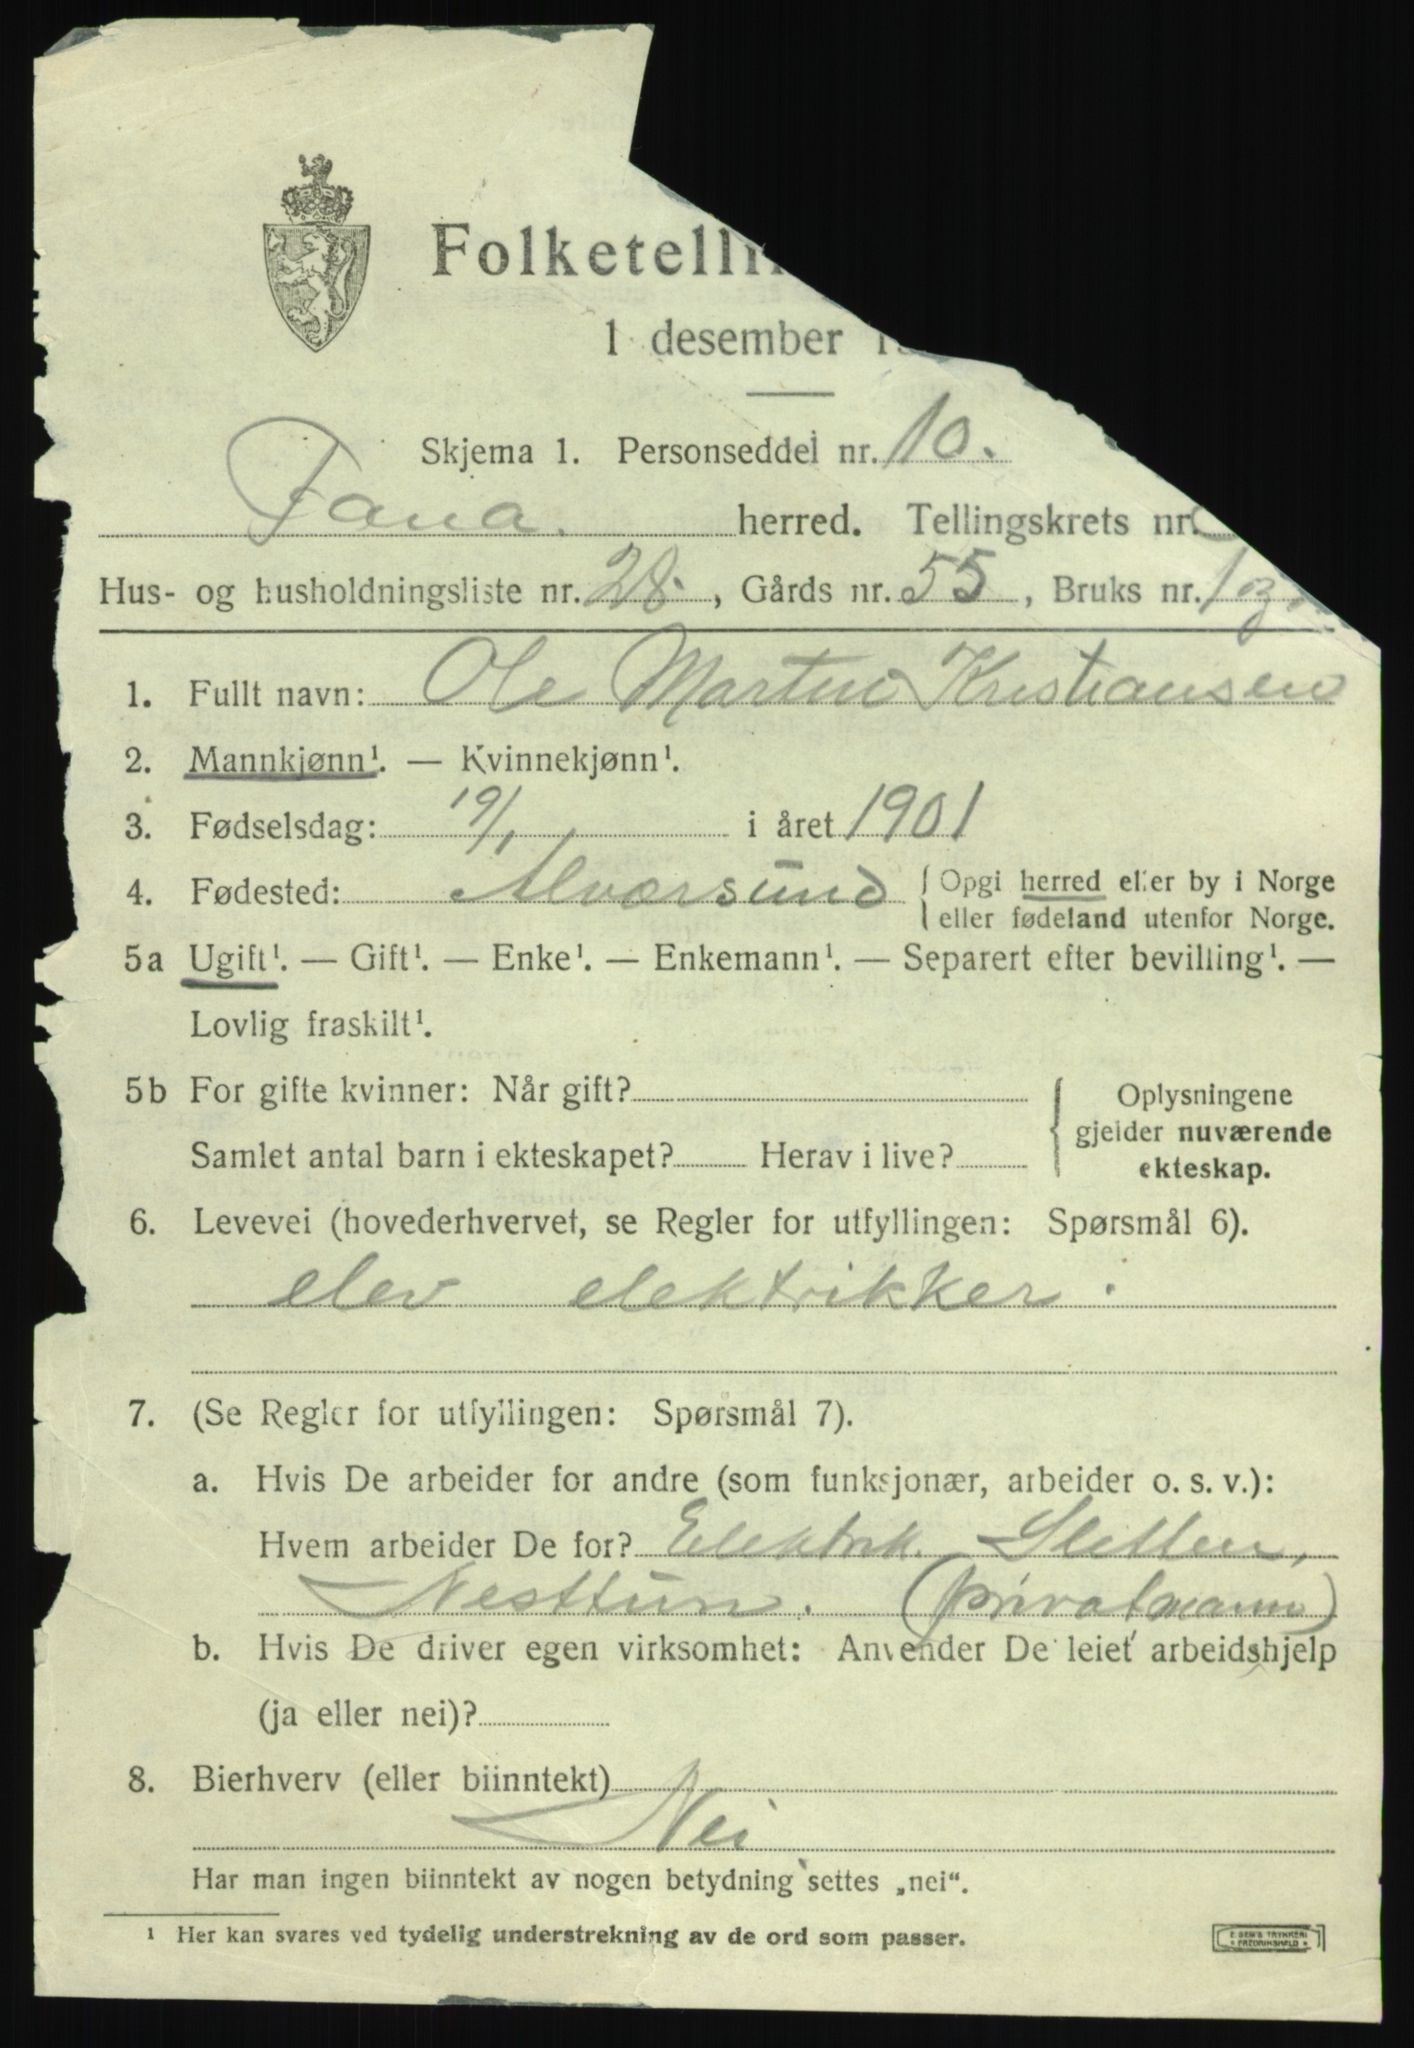 Folketelli
1 desember 1
Skjema 1. Personseddel nr. 10.
Fana. herred. Tellingskrets nr.
Hus- og husholdningsliste nr. 28. , Gårds nr. 55 , Bruks nr. 1
1. Fullt navn: Ole Martin Kristiansen
2. Mannkjønn¹. — Kvinnekjønn¹.
3. Fødselsdag: 19/1 i året 1901
4. Fødested: Alværsund { Opgi herred eller by i Norge
eller fødeland utenfor Norge.
5a Ugift¹. — Gift¹. — Enke¹. — Enkemann¹. — Separert efter bevilling¹. —
Lovlig fraskilt¹.
5b For gifte kvinner: Når gift?
Samlet antal barn i ekteskapet? Herav i live?
{ Oplysningene
gjelder nuværende
ekteskap.
6. Levevei (hovederhvervet, se Regler for utfyllingen: Spørsmål 6).
elev elektrikker.
7. (Se Regler for utfyllingen: Spørsmål 7).
a. Hvis De arbeider for andre (som funksjonær, arbeider o. s. v.):
Hvem arbeider De for? Elektrik. Sletten,
Nesttun. (privatmann)
b. Hvis De driver egen virksomhet: Anvender De leiet arbeidshjelp
(ja eller nei)?
8. Bierhverv (eller biinntekt)
Nei
Har man ingen biinntekt av nogen betydning settes „nei“.
¹ Her kan svares ved tydelig understrekning av de ord som passer.
E. SEM'S TRYKKERI
FREDRIKSHALD